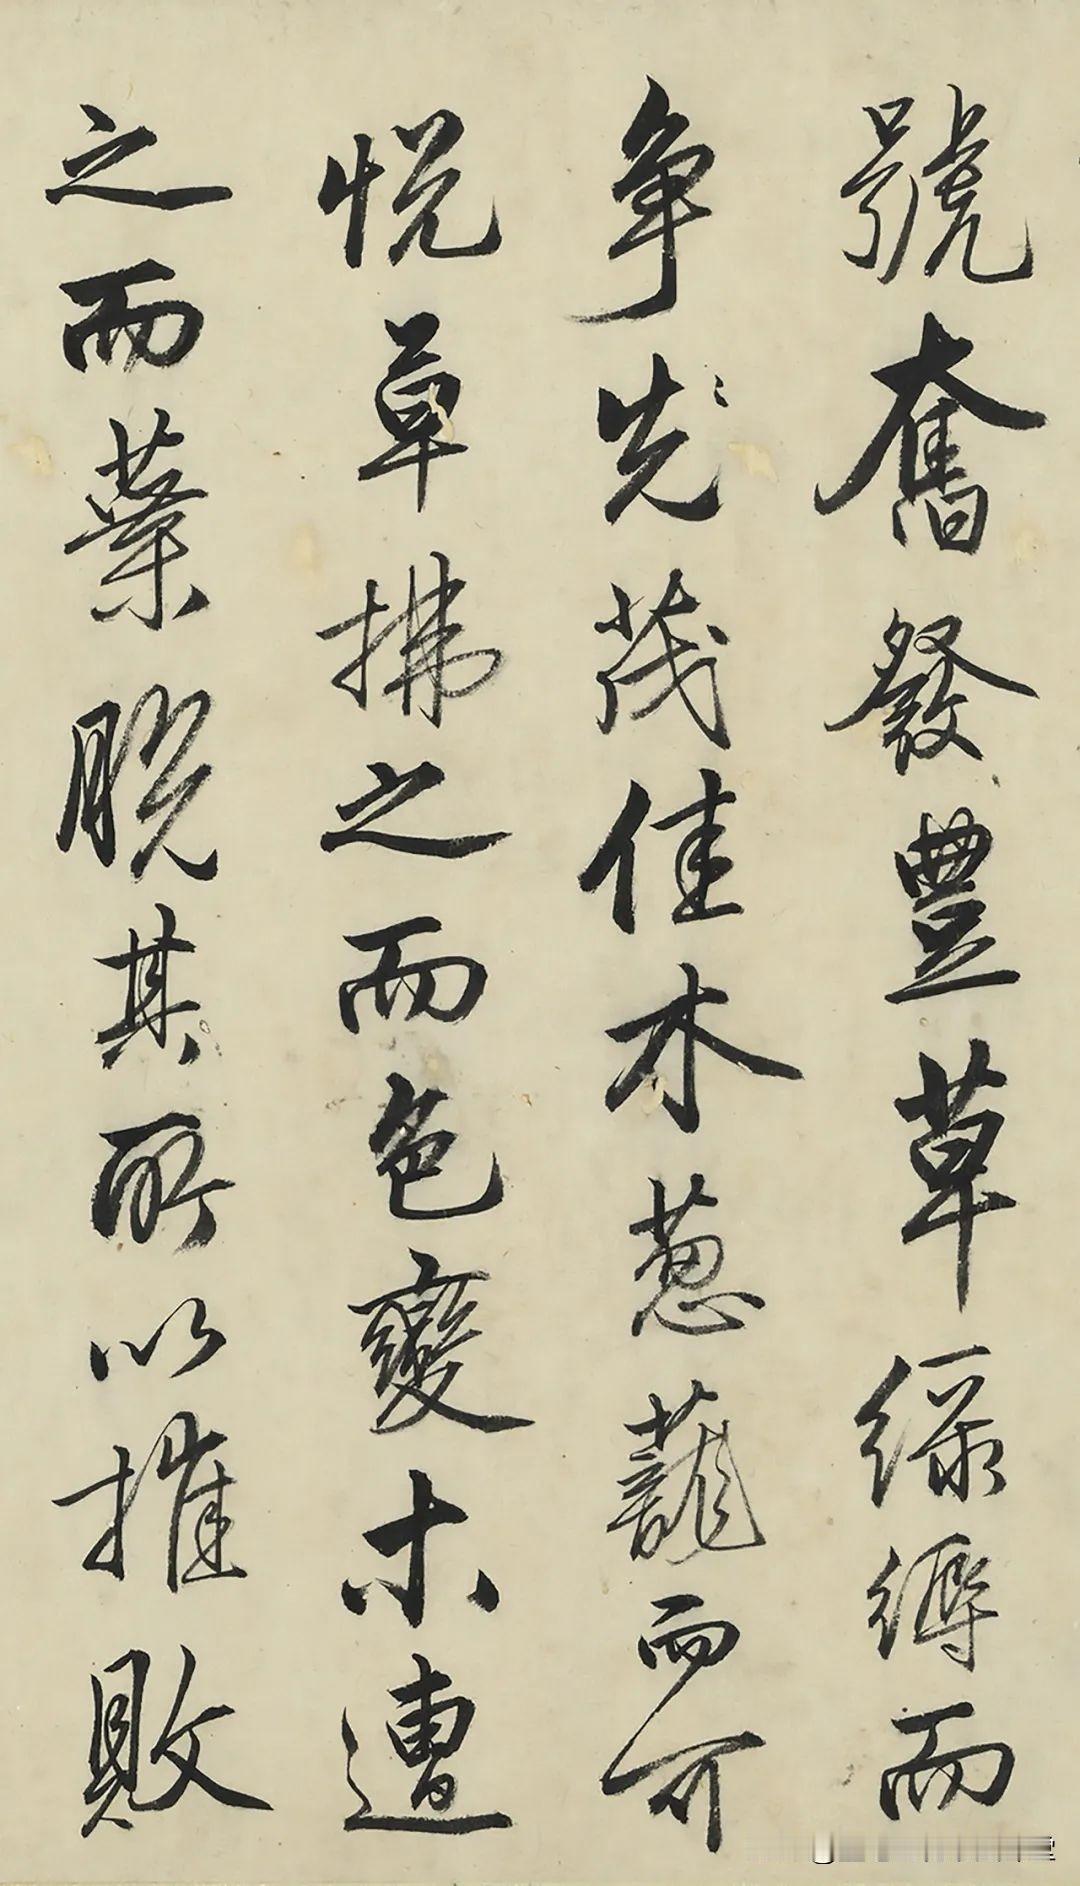 號奮發豐草綠縟而
爭先茂佳木葱蘢而可
悅草拂之而色變木遭
之而葉脫其所以摧敗